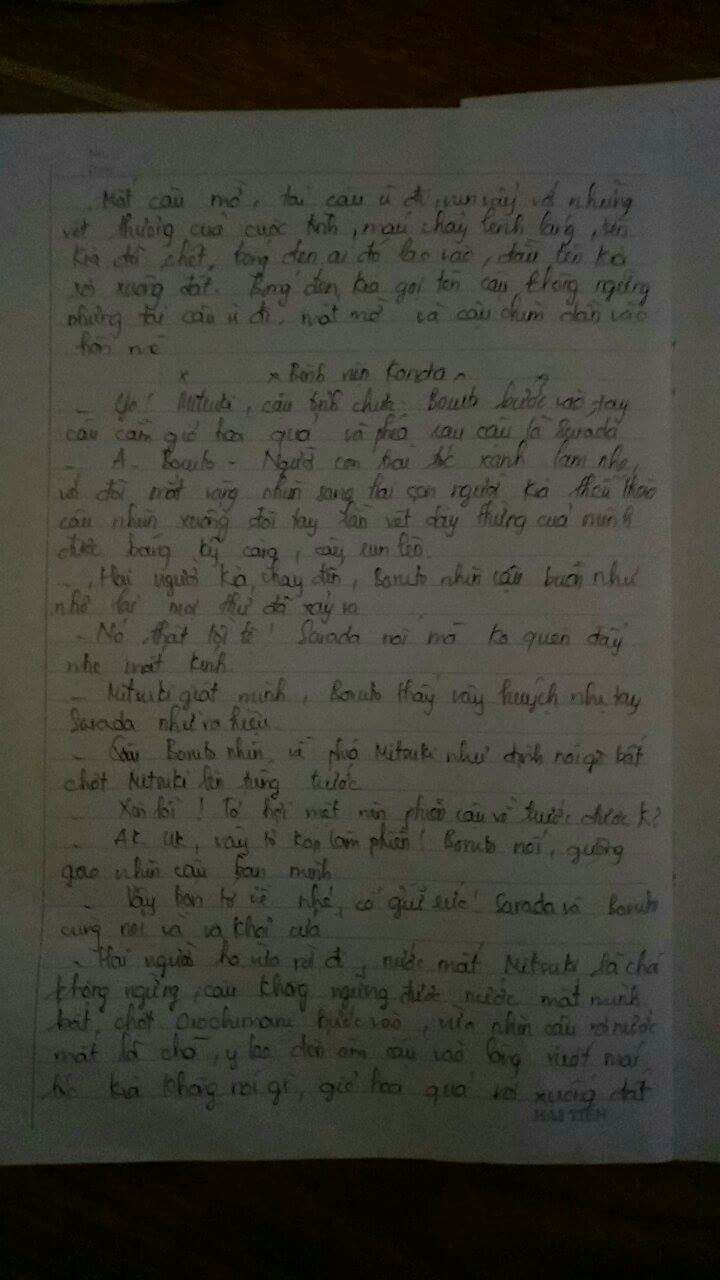 Mắt cậu mờ, tai cậu ù đi, run rẩy với những
vết thương của cuộc tình, máu chảy lênh láng, tên
kia đã chết, bóng đen ai đó lao vào, đầu tên kia
xuống đất. Bóng đen kia gọi tên cậu không ngừng
nhưng tai cậu ù đi, mắt mờ và cậu chìm dần vào
x ^ Bệnh viện Konoha ^
- Yo! Mituki, cậu tỉnh chưa Boruto bước vào tay
cậu cầm giỏ hoa quả và phía sau cậu là Sarada
- A. Boruto - Người con trai tóc xanh lam nhẹ,
với đôi mắt vàng nhìn sang hai con người kia
cậu nhìn xuống đôi tay vết dây thừng của mình
được băng kỹ càng, cậy run lên.
- Hai người kia, chạy đến, Boruto nhìn cậu buồn như
nhớ lại mọi thứ đã xảy ra
- Nó thật tồi tệ! Sarada nói mà ko quên đẩy
nhẹ mắt kính
- Mitsuki giật mình, Boruto thấy vậy huých nhẹ tay
Sarada như ra hiệu
- Boruto nhìn, về phía Mitsuki như định nói gì bất
chợt Mitsuki lên tiếng trước
- Xin lỗi! Tớ hơi mệt nên phiền cậu về trước được k?
- Ak uk, vậy tớ ko làm phiền! Boruto nói, gượng
gạo nhìn cậu bạn mình
- Vậy bọn tớ về nhé, cố giữ sức! Sarada và Boruto
cùng nói và ra khỏi cửa
- Hai người họ vừa rời đi, nước mắt Mitsuki lã chã
không ngừng, cậu không ngừng được nước mắt mình
bất chợt Orochimaru bước vào, vừa nhìn cậu rơi nước
mắt lã chã, y lao đến ôm cậu vào lòng vuốt mái
tóc kia không nói gì, giỏ hoa quả rơi xuống đất
HẢI TIẾN